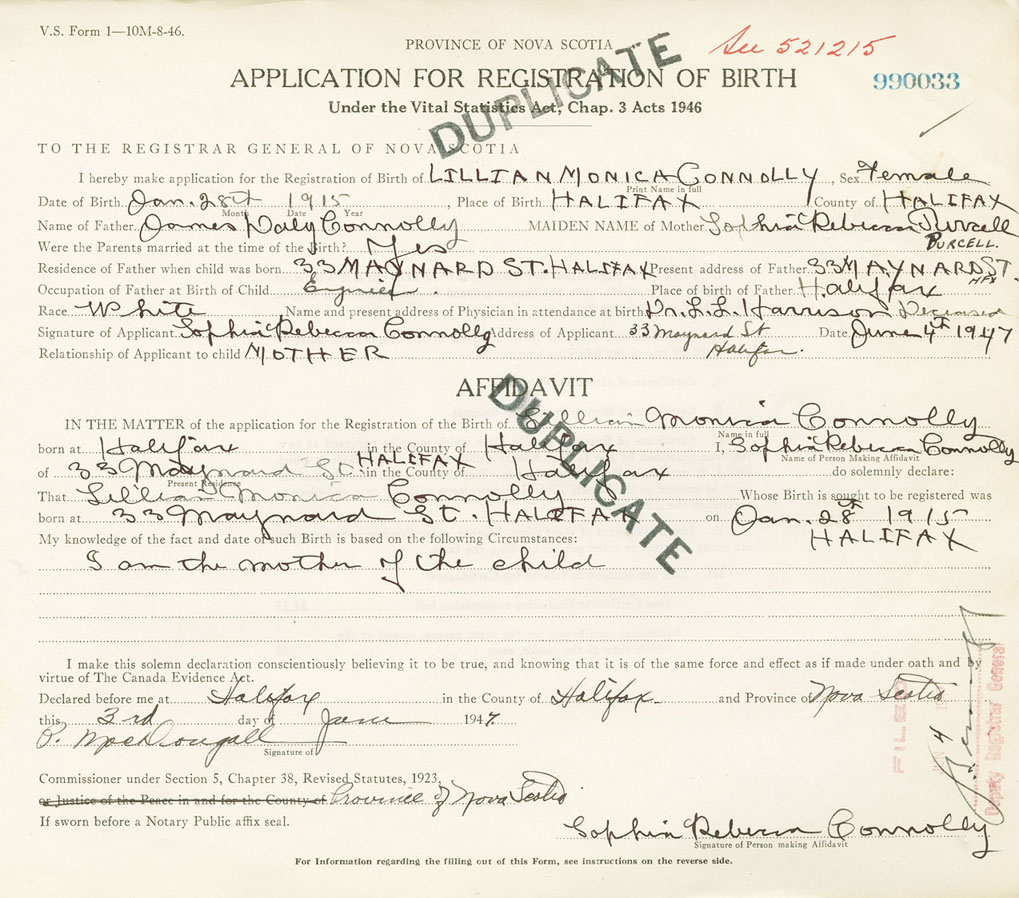 V.S. Form 1—10M-8-46.
See 521215
PROVINCE OF NOVA SCOTIA
APPLICATION FOR REGISTRATION OF BIRTH
990033
Under the Vital Statistics Act, Chap. 3 Acts 1946
DUPLICATE
TO THE REGISTRAR GENERAL OF NOVA SCOTIA
I hereby make application for the Registration of Birth of LILLIAN MONICA CONNOLLY, Sex Female
Print Name in full
Date of Birth Jan. 28th 1915, Place of Birth HALIFAX County of HALIFAX
Month Date Year
Name of Father James Daly Connolly MAIDEN NAME of Mother Sophia Rebecca Purcell
PURCELL.
Were the Parents married at the time of the Birth? Yes
Residence of Father when child was born 33 MAYNARD ST. HALIFAX Present address of Father 33 MAYNARD ST.
HFX
Occupation of Father at Birth of Child Place of birth of Father Halifax
Race White Name and present address of Physician in attendance at birth Dr. L.L. Harrison Deceased
Signature of Applicant Sophia Rebecca Connolly Address of Applicant 33 Maynard St Date June 4th 1947
Halifax.
Relationship of Applicant to child MOTHER
AFFIDAVIT
DUPLICATE
IN THE MATTER of the application for the Registration of the Birth of Lillian Monica Connolly
Name in full
born at Halifax in the County of Halifax I, Sophia Rebecca Connolly
Name of Person Making Affidavit
of 33 Maynard St. HALIFAX in the County of Halifax do solemnly declare:
Present Residence
That Lillian Monica Connolly Whose Birth is sought to be registered was
born at 33 Maynard St. HALIFAX on Jan. 28th 1915
HALIFAX
My knowledge of the fact and date of such Birth is based on the following Circumstances:
I am the mother of the child
I make this solemn declaration conscientiously believing it to be true, and knowing that it is of the same force and effect as if made under oath and by
virtue of The Canada Evidence Act.
Declared before me at Halifax in the County of Halifax and Province of Nova Scotia
this 3rd day of June 1947
P. MacDougall
Signature of
Commissioner under Section 5, Chapter 38, Revised Statutes, 1923,
or Justice of the Peace in and for the County of Province of Nova Scotia
If sworn before a Notary Public affix seal.
FILED
4
Deputy Registrar General
Sophia Rebecca Connolly
Signature of Person making Affidavit
For Information regarding the filling out of this Form, see instructions on the reverse side.